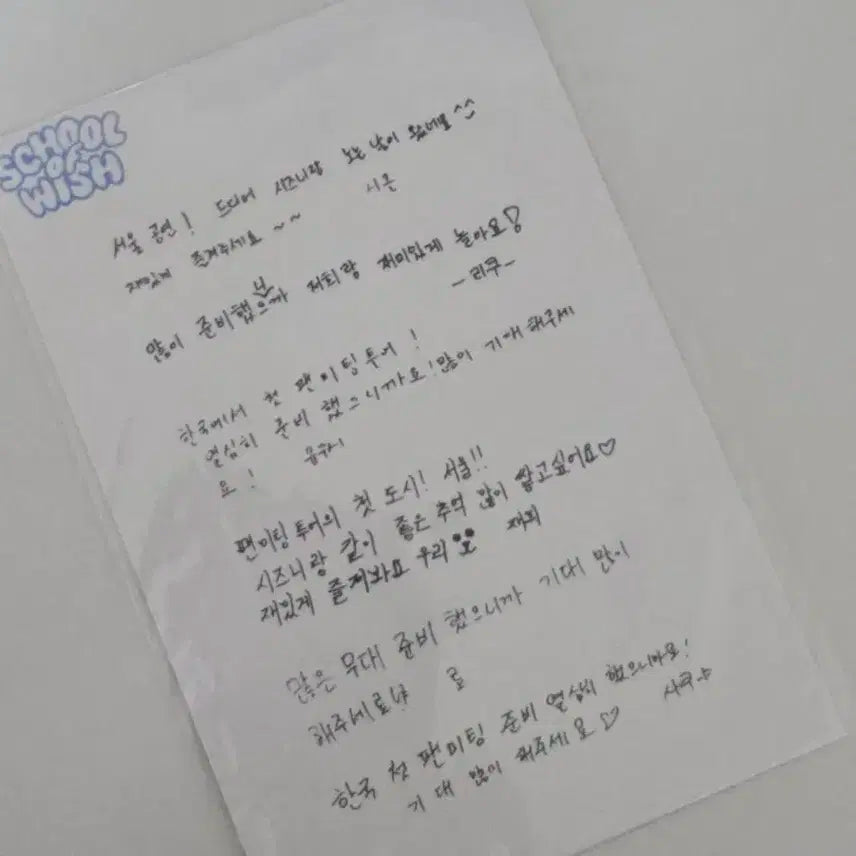 SCHOOL
OF
WISH
서울 공연! 드디어 시즈니랑 노는 날이 왔네요^^
재밌게 즐겨주세요~~ 시온
많이 준비했으니까 저희랑 재미있게 놀아요!
-리쿠-
한국에서 첫 팬미팅투어!
열심히 준비 했으니까요! 많이 기애 해주세
요! 유우시
팬미팅 투어의 첫 도시! 서울!!
시즈니랑 같이 좋은 추억 많이 쌓고싶어요♡
재밌게 즐겨봐요 우리 재희
많은 무대 준비 했으니까 기대 많이
해주세요 료
한국 첫 팬미팅 준비 열심히 했으니까요! 사쿠야
기대 많이 해주세요♡